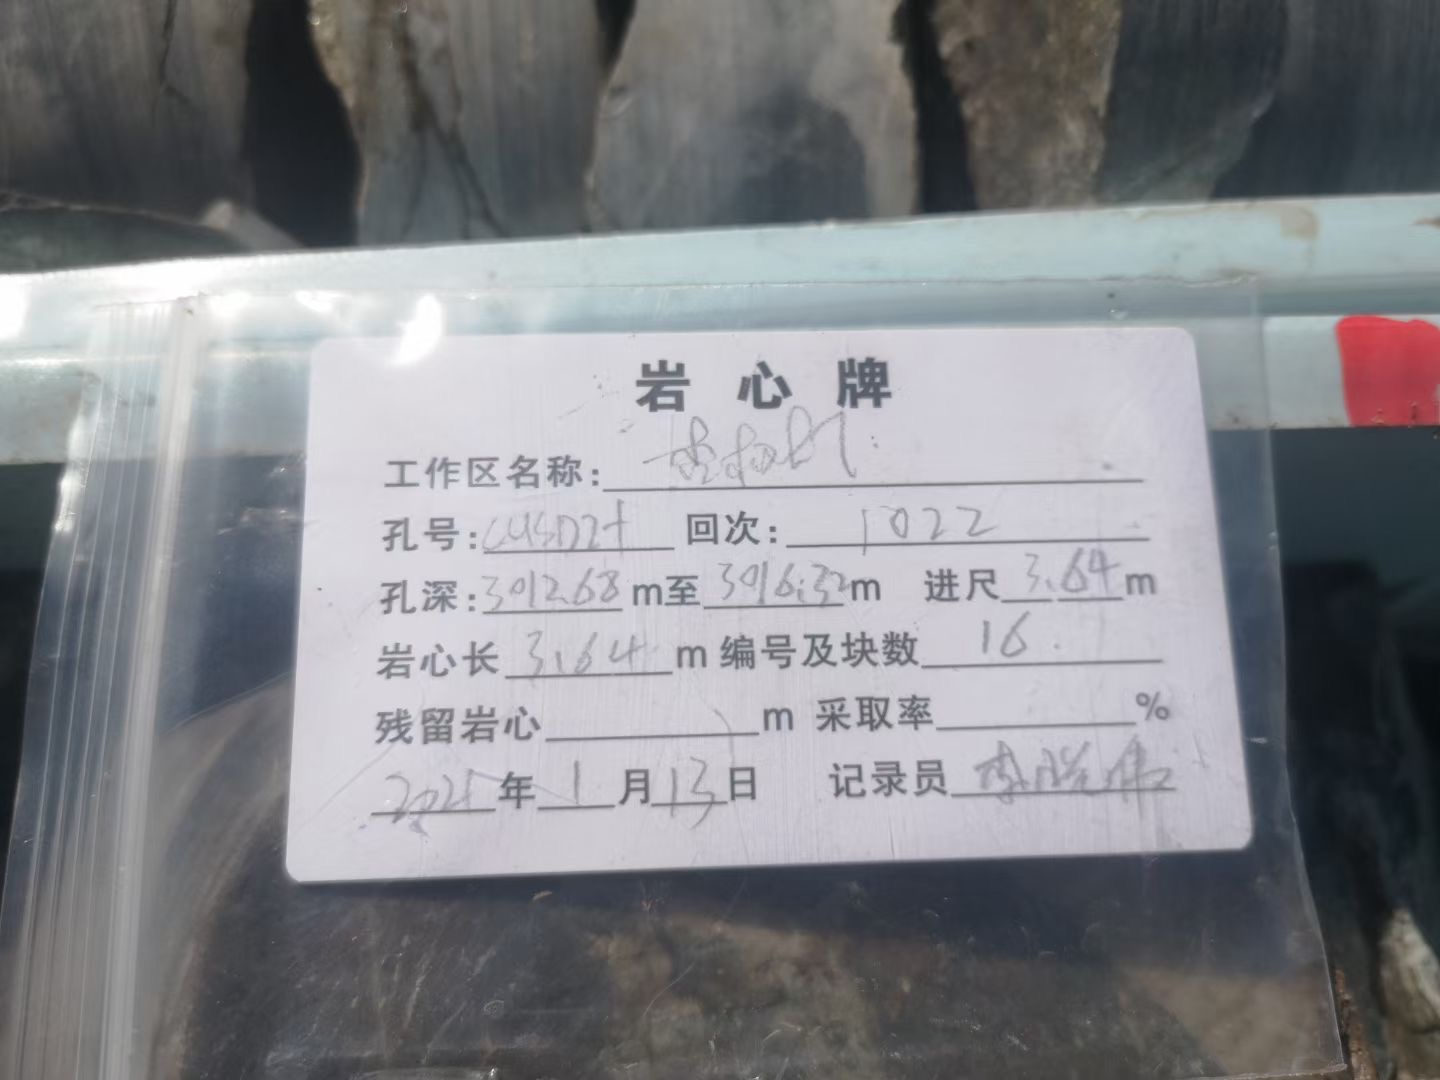 岩心牌
工作区名称:
孔号: 回次: 1022
孔深: 3012.68 m至 3016.32 m 进尺 3.64 m
岩心长 3.64 m 编号及块数 16.
残留岩心 m 采取率 %
2021年1月13日 记录员